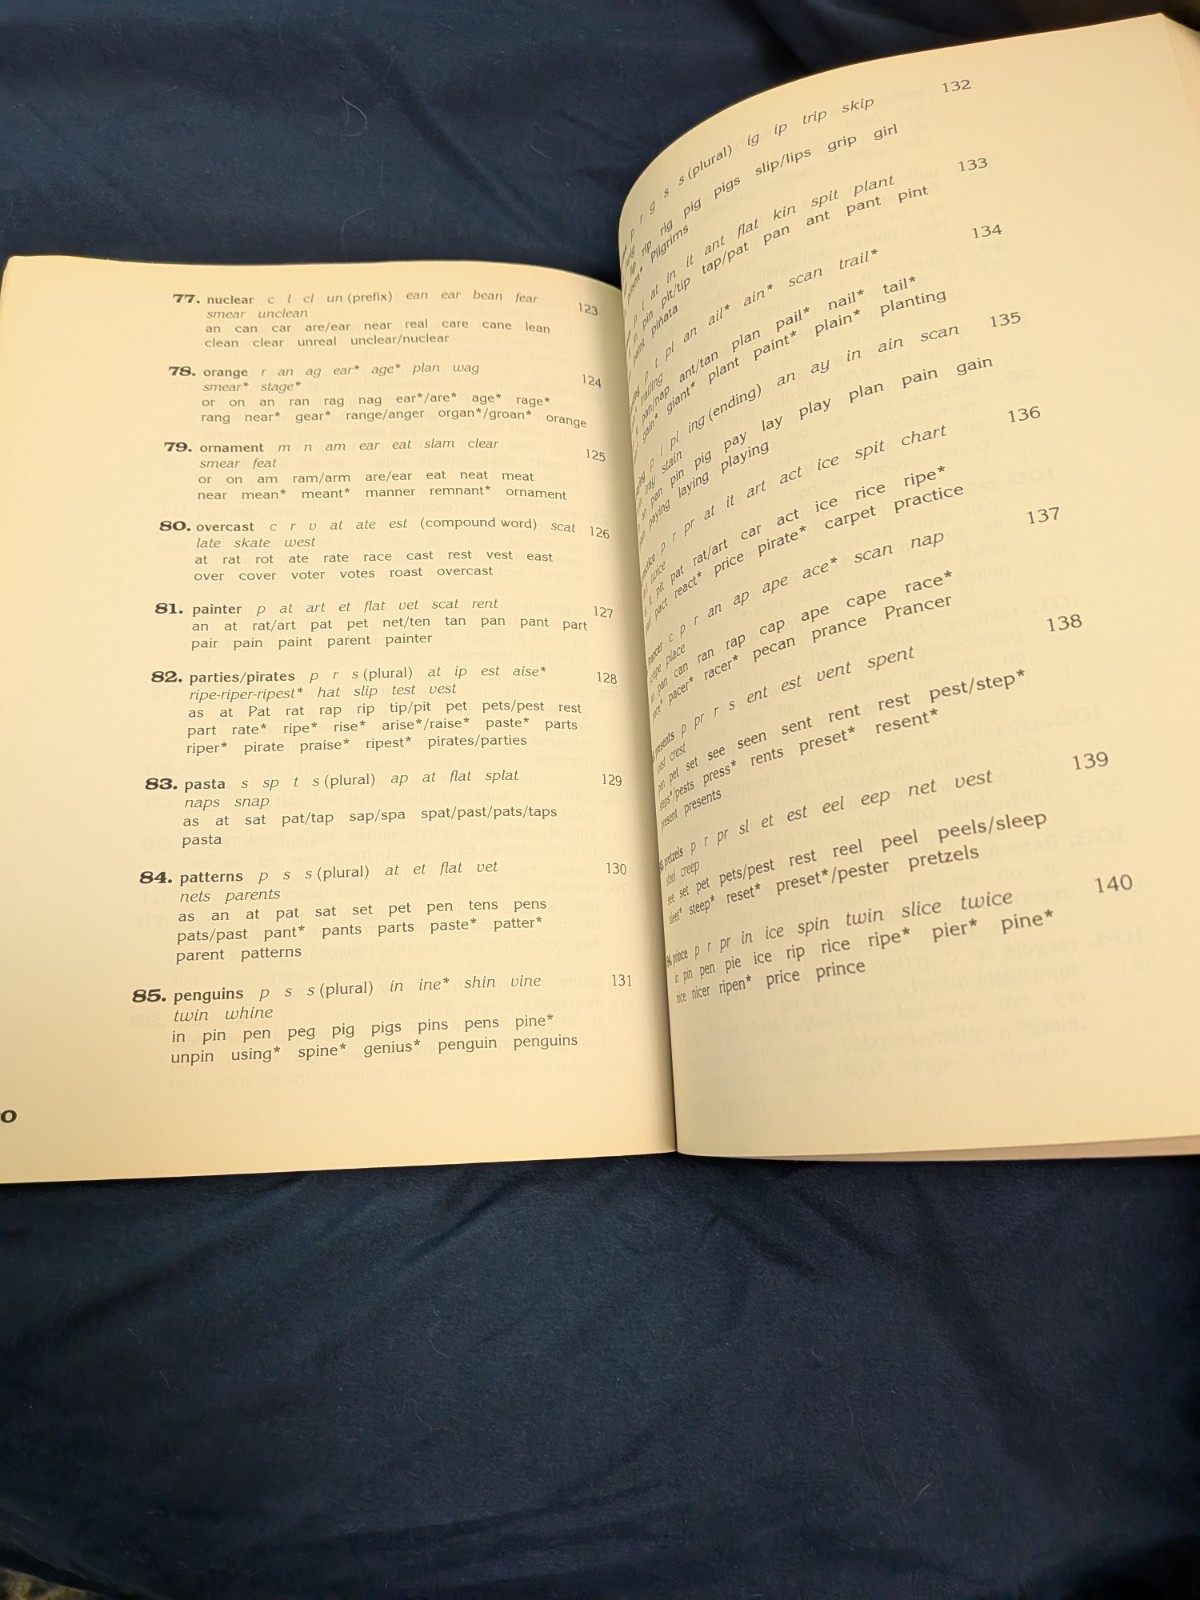 77. nuclear c l cl un (prefix) ean ear bean fear 123
smear unclean
an can car are/ear near real care cane lean
clean clear unreal unclear/nuclear
78. orange r an ag ear* age* plan wag 124
smear* stage*
or on an ran rag nag ear*/are* age* rage*
rang near* gear* range/anger organ*/groan* orange
79. ornament m n am ear eat slam clear 125
smear feat
or on am ram/arm are/ear eat neat meat
near mean* meant* manner remnant* ornament
80. overcast c r v at ate est (compound word) scat 126
late skate west
at rat rot ate rate race cast rest vest east
over cover voter votes roast overcast
81. painter p at art et flat vet scat rent 127
an at rat/art pat pet net/ten tan pan pant part
pair pain paint parent painter
82. parties/pirates p r s (plural) at ip est aise* 128
ripe-riper-ripest* hat slip test vest
as at Pat rat rap rip tip/pit pet pets/pest rest
part rate* ripe* rise* arise*/raise* paste* parts
riper* pirate praise* ripest* pirates/parties
83. pasta s sp t s (plural) ap at flat splat 129
naps snap
as at sat pat/tap sap/spa spat/past/pats/taps
pasta
84. patterns p s s (plural) at et flat vet 130
nets parents
as an at pat sat set pet pen tens pens
pats/past pant* pants parts paste* patter*
parent patterns
85. penguins p s s (plural) in ine* shin vine 131
twin whine
in pin pen peg pig pigs pins pens pine*
unpin using* spine* genius* penguin penguins
p r g s s (plural) ig ip trip skip 132
rip rig pig pigs slip/lips grip girl
pilgrims
p t at in it ant flat kin spit plant 133
in pin pit/tip tap/pat pan ant pant pint
paint piñata
p t pl an ail* ain* scan trail* 134
pan/nap ant/tan plan pail* nail* tail*
gain* giant* plant paint* plain* planting
p l pl ing (ending) an ay in ain scan 135
stain
pan pin pig pay lay play plan pain gain
paying laying playing
p r pr at it art act ice spit chart 136
twice
pit pat rat/art car act ice rice ripe*
pact react* price pirate* carpet practice
c p r an ap ape ace* scan nap 137
place
pan can ran rap cap ape cape race*
pacer* racer* pecan prance Prancer
p pr r s ent est vent spent 138
crest
pen pet set see seen sent rent rest pest/step*
steps*/pests press* rents preset* resent*
present presents
pretzels p r pr sl et est eel eep net vest 139
steel creep
see set pet pets/pest rest reel peel peels/sleep
sleet* steep* reset* preset*/pester pretzels
prince p r pr in ice spin twin slice twice 140
in pin pen pie ice rip rice ripe* pier* pine*
nice nicer ripen* price prince